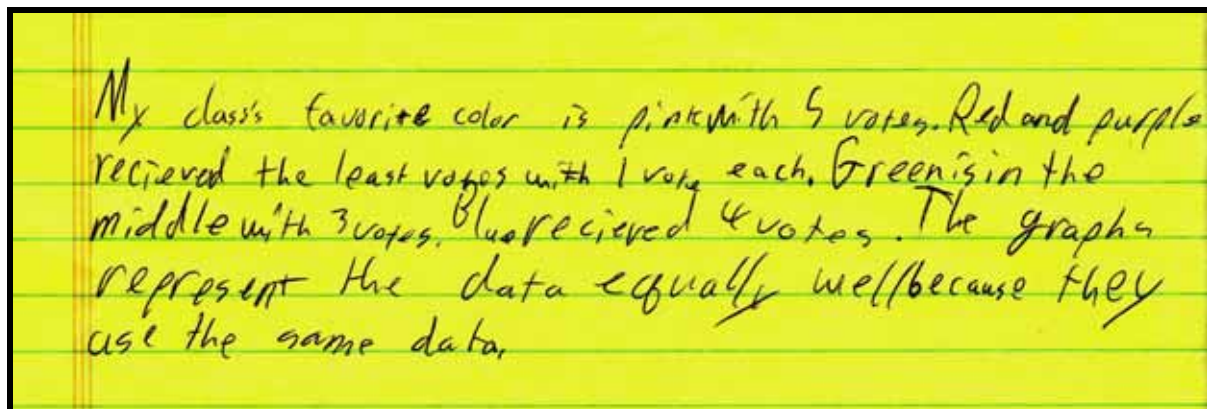 My class's favorite color is pink with 5 votes. Red and purple
recieved the least votes with 1 vote each. Green is in the
middle with 3 votes. Blue recieved 4 votes. The graphs
represent the data equally well because they
use the same data.